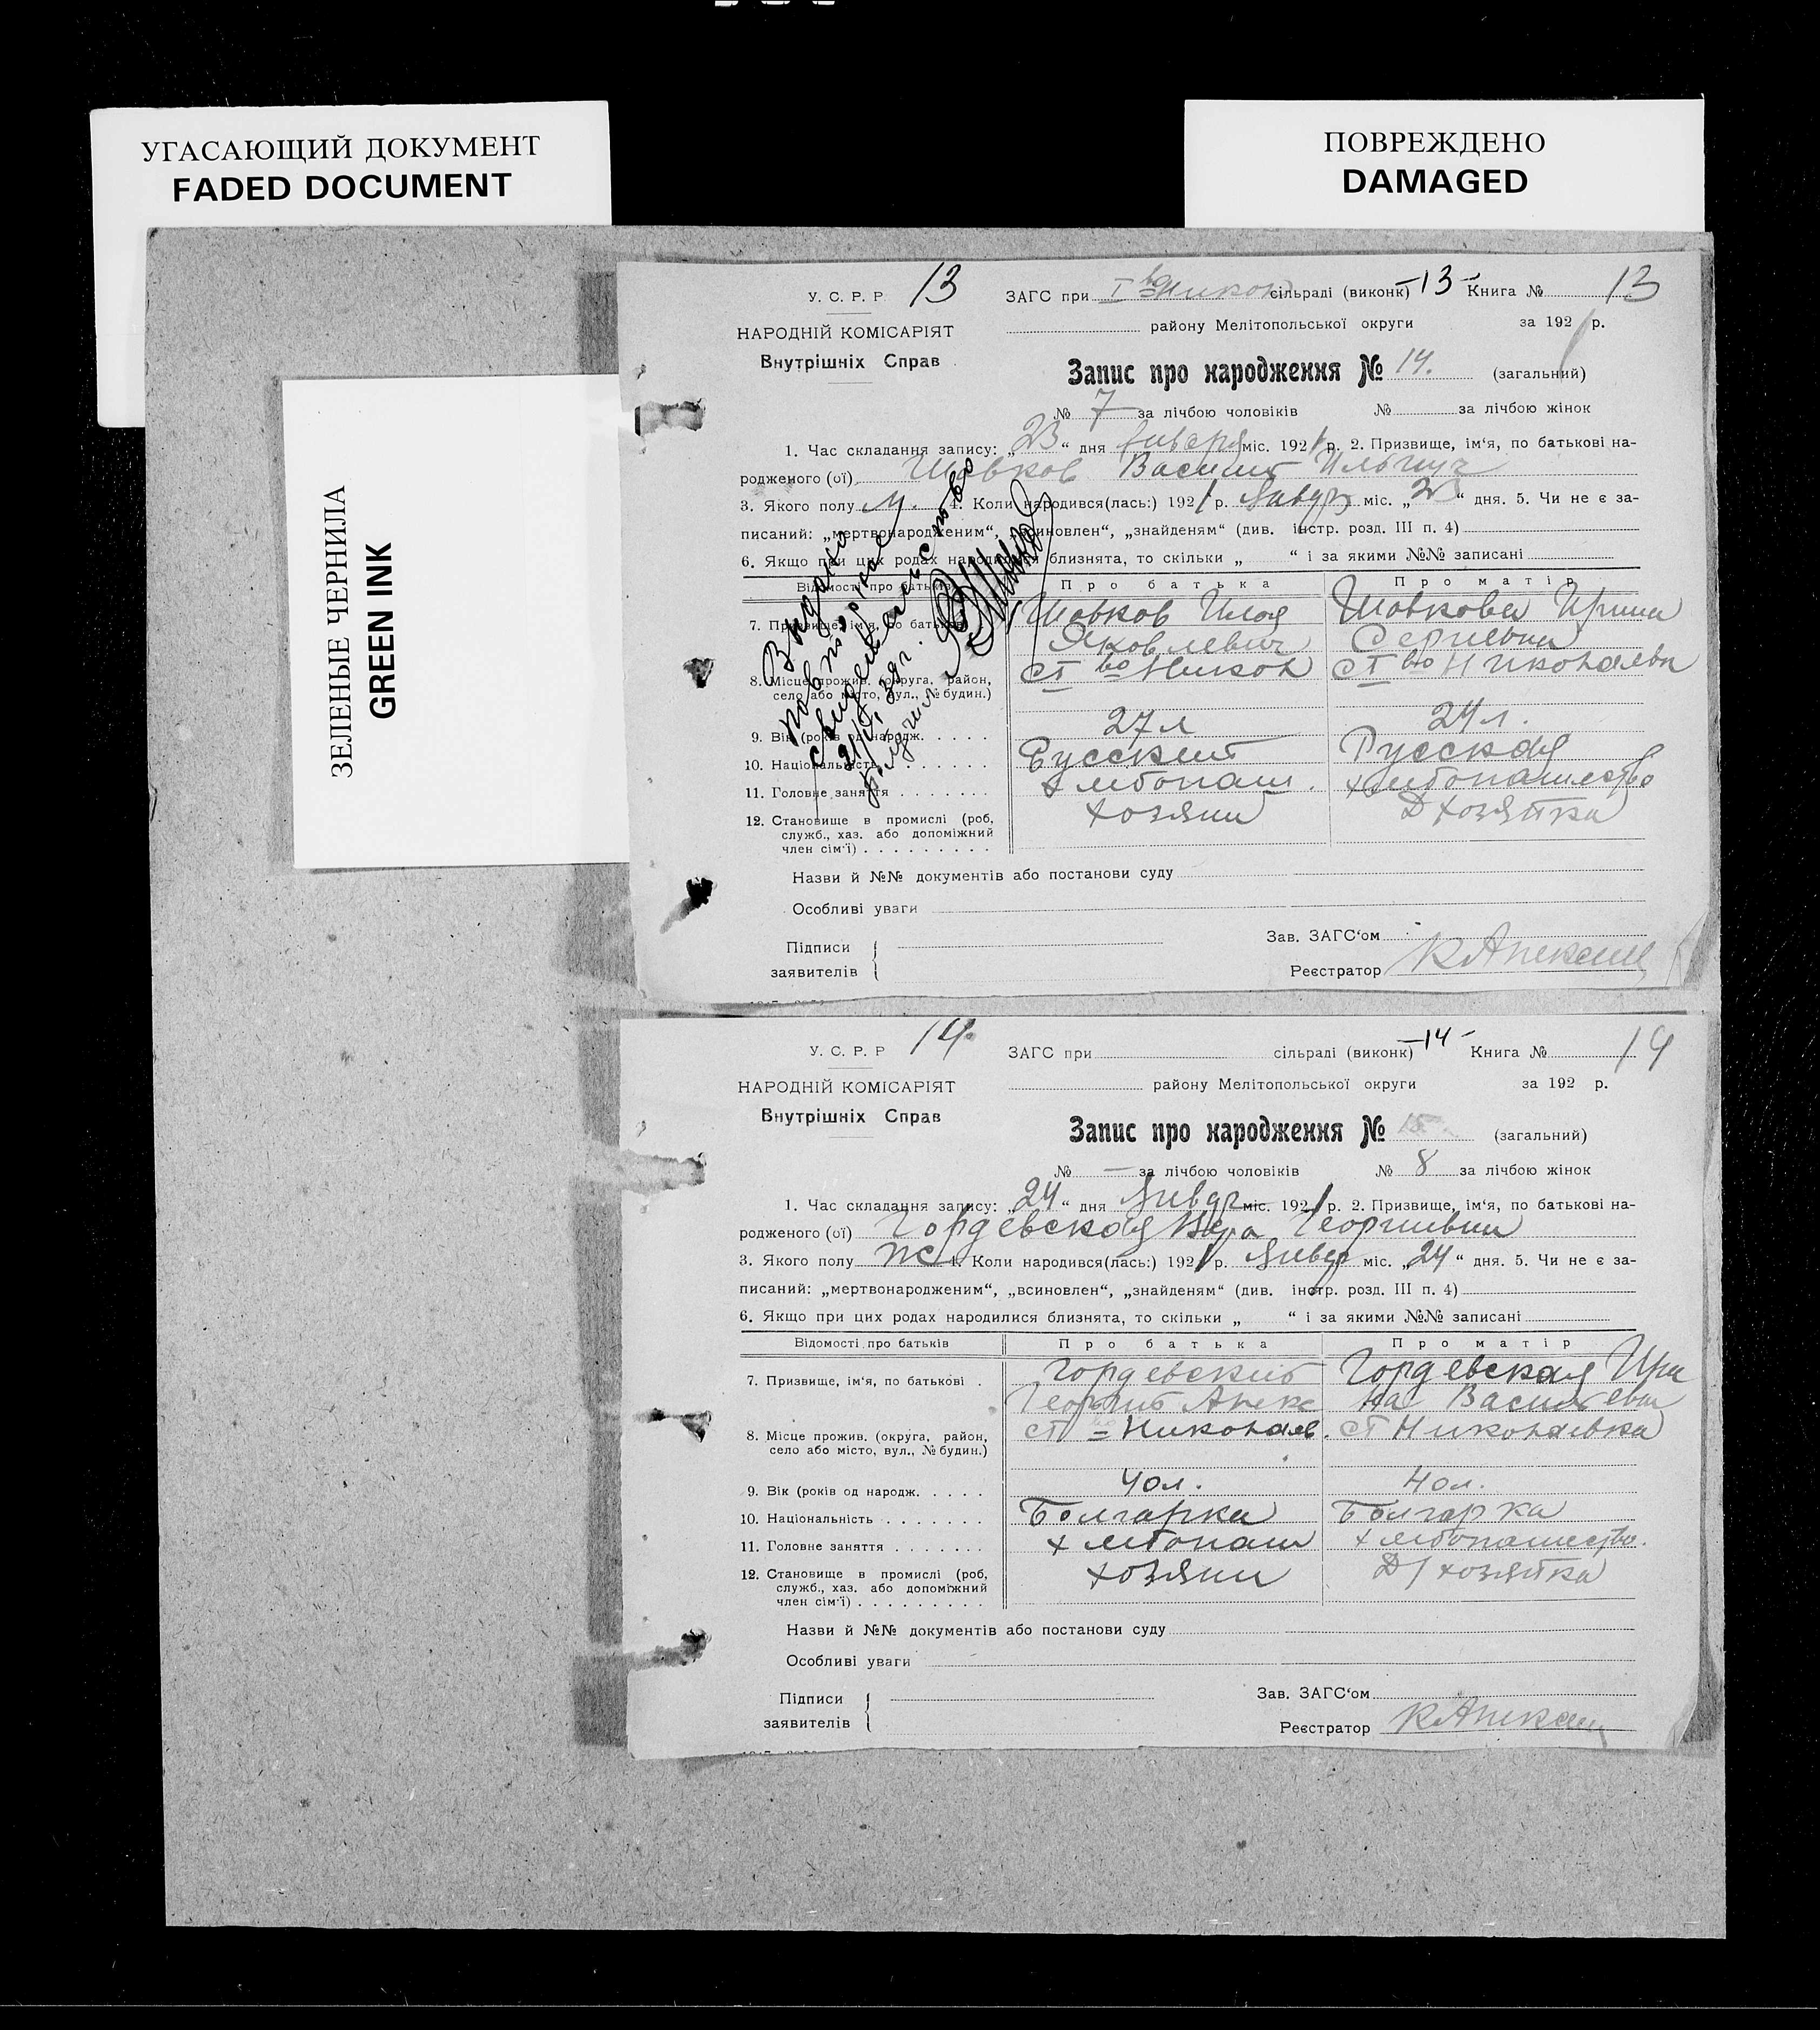 УГАСАЮЩИЙ ДОКУМЕНТ
FADED DOCUMENT
ПОВРЕЖДЕНО
DAMAGED
ЗЕЛЕНЫЕ ЧЕРНИЛА
GREEN INK
У. С. Р. Р 13 ЗАГС при І сільраді (виконк) -13- Книга № 13
НАРОДНІЙ КОМІСАРІЯТ району Мелітопольської округи за 1921 р.
Внутрішніх Справ Запис про народження № 14. (загальний)
№ 7 за лічбою чоловіків № за лічбою жінок
1. Час складання запису: „23“ дня января міс. 1921 р. 2. Призвище, ім‘я, по батькові на-
родженого (ої) Шовков Василий Ильич
3. Якого полу м. 4. Коли народився(лась:) 1921 р. январ міс. „23“ дня. 5. Чи не є за-
писаний: „мертвонародженим“, „всиновлен“, „знайденям“ (див. інстр. розд. III п. 4)
6. Якщо при цих родах народилися близнята, то скільки „ “ і за якими №№ записані
Відомості про батьків Про батька Про матір
7. Призвище, ім‘я, по батькові Шовков Илья Шовкова Ирина
Яковлевич Сергиевна
8. Місце прожив. (округа, район, с І во Никол с І во Николаевка
село або місто, вул., № будин.)
9. Вік (років од народж. 27 л 24 л.
10. Національність Русский Русская
11. Головне заняття хлебопаш. хлебопашество
12. Становище в промислі (роб, хозяин Д хозяйка
служб., хаз. або допоміжний
член сім‘ї)
Выдано
повторное
свидетельство
Назви й №№ документів або постанови суду
Особливі уваги
Підписи Зав. ЗАГС‘ом
заявителів Реєстратор
У. С. Р. Р 14. ЗАГС при сільраді (виконк) -14- Книга № 14
НАРОДНІЙ КОМІСАРІЯТ району Мелітопольської округи за 192 р.
Внутрішніх Справ Запис про народження № 15 (загальний)
№ — за лічбою чоловіків № 8 за лічбою жінок
1. Час складання запису: „24“ дня январ міс. 1921 р. 2. Призвище, ім‘я, по батькові на-
родженого (ої) Гордевская Вера Георгиевна
3. Якого полу ж 4. Коли народився(лась:) 1921 р. январ міс. „24“ дня. 5. Чи не є за-
писаний: „мертвонародженим“, „всиновлен“, „знайденям“ (див. інстр. розд. III п. 4)
6. Якщо при цих родах народилися близнята, то скільки „ “ і за якими №№ записані
Відомості про батьків Про батька Про матір
7. Призвище, ім‘я, по батькові Гордевский Гордевская Ири
Георгий Алекс на Васильевна
8. Місце прожив. (округа, район, Николаев. Николаевка
село або місто, вул., № будин.)
9. Вік (років од народж. 40 л. 40 л.
10. Національність Болгарка Болгарка
11. Головне заняття хлебопаш хлебопашество.
12. Становище в промислі (роб, хозяин Д/хозяйка
служб., хаз. або допоміжний
член сім‘ї)
Назви й №№ документів або постанови суду
Особливі уваги
Підписи Зав. ЗАГС‘ом
заявителів Реєстратор